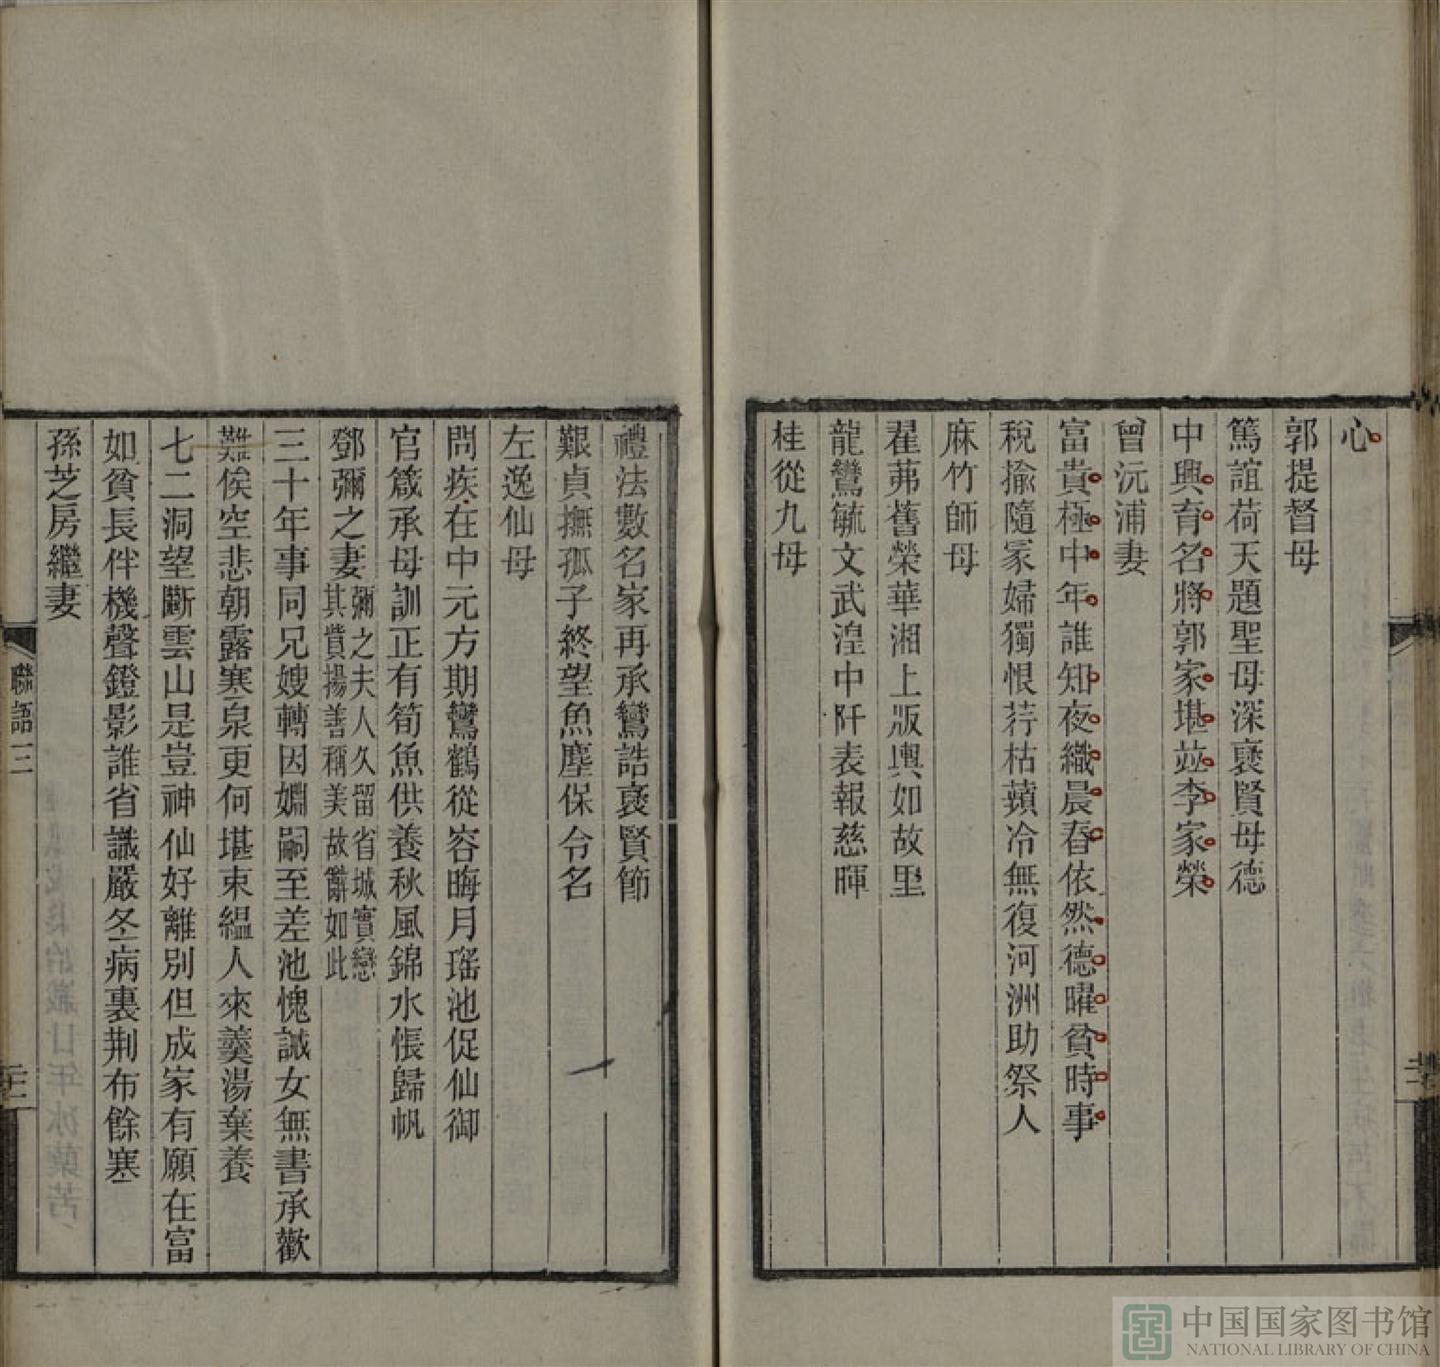 心
郭提督母
篤誼荷天題聖母深褒賢母德
中興育名將郭家堪竝李家榮
曾沅浦妻
富貴極中年誰知夜織晨舂依然德曜貧時事
稅揄隨冢婦獨恨荇枯蘋冷無復河洲助祭人
麻竹師母
翟茀舊榮華湘上版輿如故里
龍鸞毓文武湟中阡表報慈暉
桂從九母
禮法數名家再承鸞誥褒賢節
艱貞撫孤子終望魚塵保令名
左逸仙母
問疾在中元方期鸞鶴從容晦月瑤池促仙御
官箴承母訓正有筍魚供養秋風錦水悵歸帆
鄧彌之妻彌之夫人久留省城實戀
其貲揚善稱美故辭如此
三十年事同兄嫂轉因嫺嗣至差池愧誡女無書承歡
難俟空悲朝露寒泉更何堪束縕人來羹湯棄養
七二洞望斷雲山是豈神仙好離別但成家有願在富
如貧長伴機聲鐙影誰省識嚴冬病裏荆布餘寒
孫芝房繼妻
聯語三
二十二
中国国家图书馆
NATIONAL LIBRARY OF CHINA